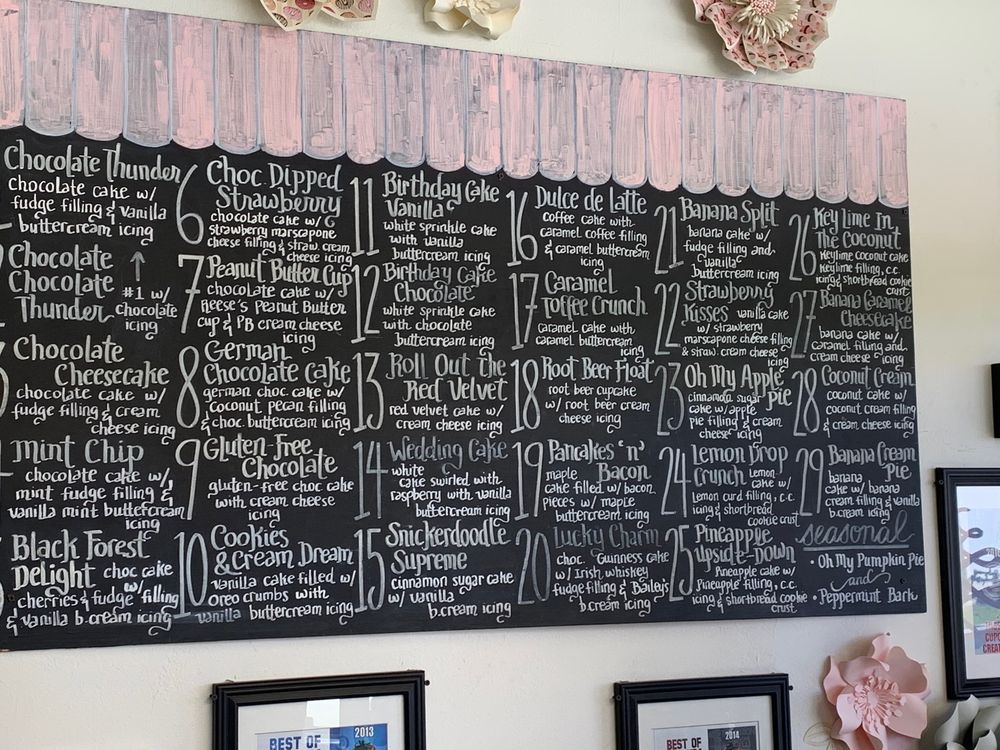 Chocolate Thunder
chocolate cake w/
fudge filling & vanilla
buttercream icing
Chocolate
Chocolate
Thunder
↑
#1 w/
chocolate
icing
Chocolate
Cheesecake
chocolate cake w/
fudge filling & cream
cheese icing
Mint Chip
chocolate cake w/
mint fudge filling &
vanilla mint buttercream
icing
Black Forest
Delight choc cake w/
cherries & fudge filling
& vanilla b.cream icing
6 Choc. Dipped
Strawberry
chocolate cake w/
strawberry marscapone
cheese filling & straw. cream
cheese icing
7 Peanut Butter Cup
chocolate cake w/
Reese's Peanut Butter
Cup & PB cream cheese
icing
8 German
Chocolate Cake
german choc. cake w/
coconut pecan filling
& choc. buttercream icing
9 Gluten-Free
Chocolate
gluten-free choc cake
with cream cheese
icing
10 Cookies
& Cream Dream
vanilla cake filled w/
oreo crumbs with
vanilla buttercream icing
11 Birthday Cake
Vanilla
white sprinkle cake
with vanilla
buttercream icing
12 Birthday Cake
Chocolate
white sprinkle cake
with chocolate
buttercream icing
13 Roll Out the
Red Velvet
red velvet cake w/
cream cheese icing
14 Wedding Cake
white
cake swirled with
raspberry with vanilla
buttercream icing
15 Snickerdoodle
Supreme
cinnamon sugar cake
w/ vanilla
b.cream icing
16 Dulce de Latte
coffee cake with
caramel coffee filling
& caramel buttercream
icing
17 Caramel
Toffee Crunch
caramel cake with
caramel buttercream
icing
18 Root Beer Float
root beer cupcake
w/ root beer cream
cheese icing
19 Pancakes 'n'
Bacon
maple
cake filled w/ bacon
pieces w/ maple
buttercream icing
20 Lucky Charm
choc. Guinness cake
w/ Irish whiskey
fudge filling & Bailey's
b.cream icing
21 Banana Split
banana cake w/
fudge filling and
vanilla
buttercream icing
22 Strawberry
Kisses vanilla cake
w/ strawberry
marscapone cheese filling
& straw. cream cheese
icing
23 Oh My Apple
Pie
cinnamon sugar
cake w/ apple
pie filling & cream
cheese icing
24 Lemon Drop
Crunch Lemon
cake w/
Lemon curd filling, c.c.
icing & shortbread
cookie crust
25 Pineapple
Upside-Down
Pineapple cake w/
Pineapple filling, c.c.
icing & shortbread cookie
crust
26 Key Lime In
The Coconut
Keylime coconut cake
Keylime filling, c.c.
icing & shortbread cookie
crust
27 Banana Caramel
Cheesecake
banana cake w/
caramel filling and
cream cheese icing
28 Coconut Cream
coconut cake w/
coconut cream filling
& coconut b.cream
icing
29 Banana Cream
Pie
banana
cake w/ banana
cream filling & vanilla
b.cream icing
seasonal
• Oh My Pumpkin Pie
and
• Peppermint Bark
BEST OF
2013
BEST OF
2014